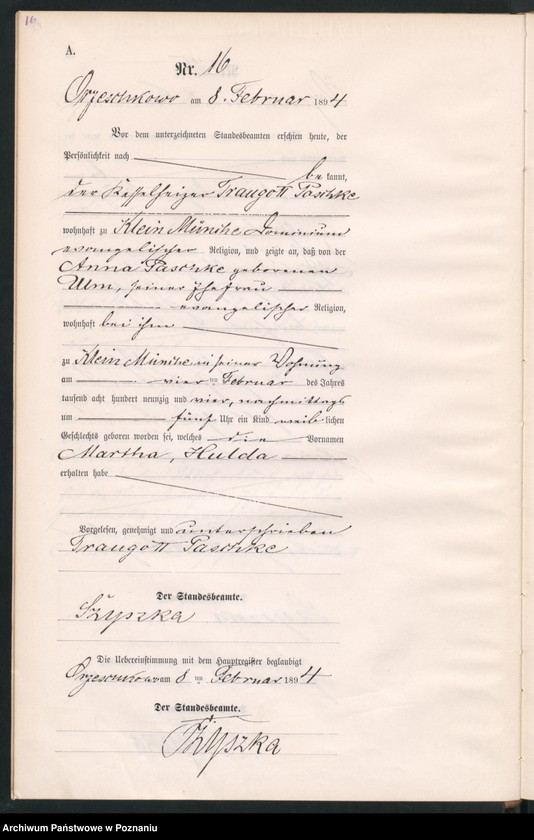 16
A.
Nr. 16
Orzeschkowo am 8. Februar 1894
Vor dem unterzeichneten Standesbeamten erschien heute, der
Persönlichkeit nach
bekannt,
der Kesselheizer Traugott Paschke
wohnhaft zu Klein Münche Dominium
evangelischer Religion, und zeigte an, daß von der
Anna Paschke geborenen
Ulm, seiner Ehefrau
evangelischer Religion,
wohnhaft bei ihm
zu Klein Münche in seiner Wohnung
am vier ten Februar des Jahres
tausend acht hundert neunzig und vier, nachmittags
um fünf Uhr ein Kind weiblichen
Geschlechts geboren worden sei, welches die Vornamen
Martha, Hulda
erhalten habe
Vorgelesen, genehmigt und unterschrieben
Traugott Paschke
Der Standesbeamte.
Szyszka
Die Uebereinstimmung mit dem Hauptregister beglaubigt
Orzeschkowo am 8 ten Februar 1894
Der Standesbeamte.
Szyszka
Archiwum Państwowe w Poznaniu